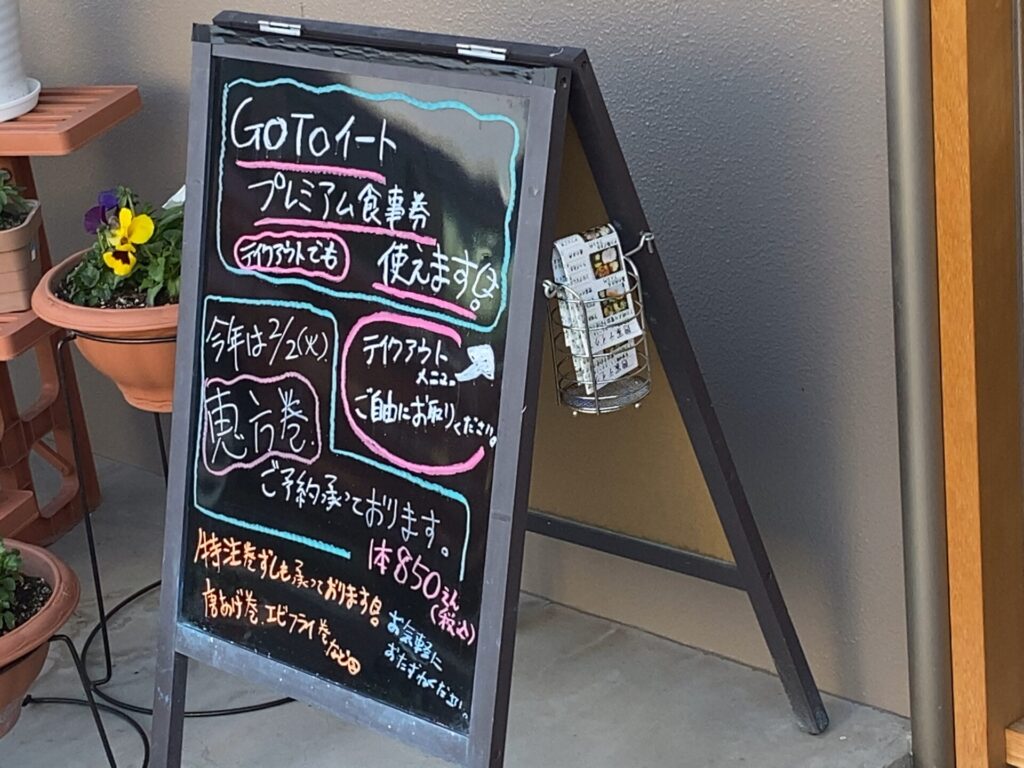 GOTOイート
プレミアム食事券
テイクアウトでも
使えます。
今年は2/2(火).
恵方巻
テイクアウト
メニュー
ご自由にお取りください。
ご予約承っております。
1本850えん
(税込)
特注巻ずしも承っております
唐あげ巻、エビフライ巻など
お気軽に
おたずねください。